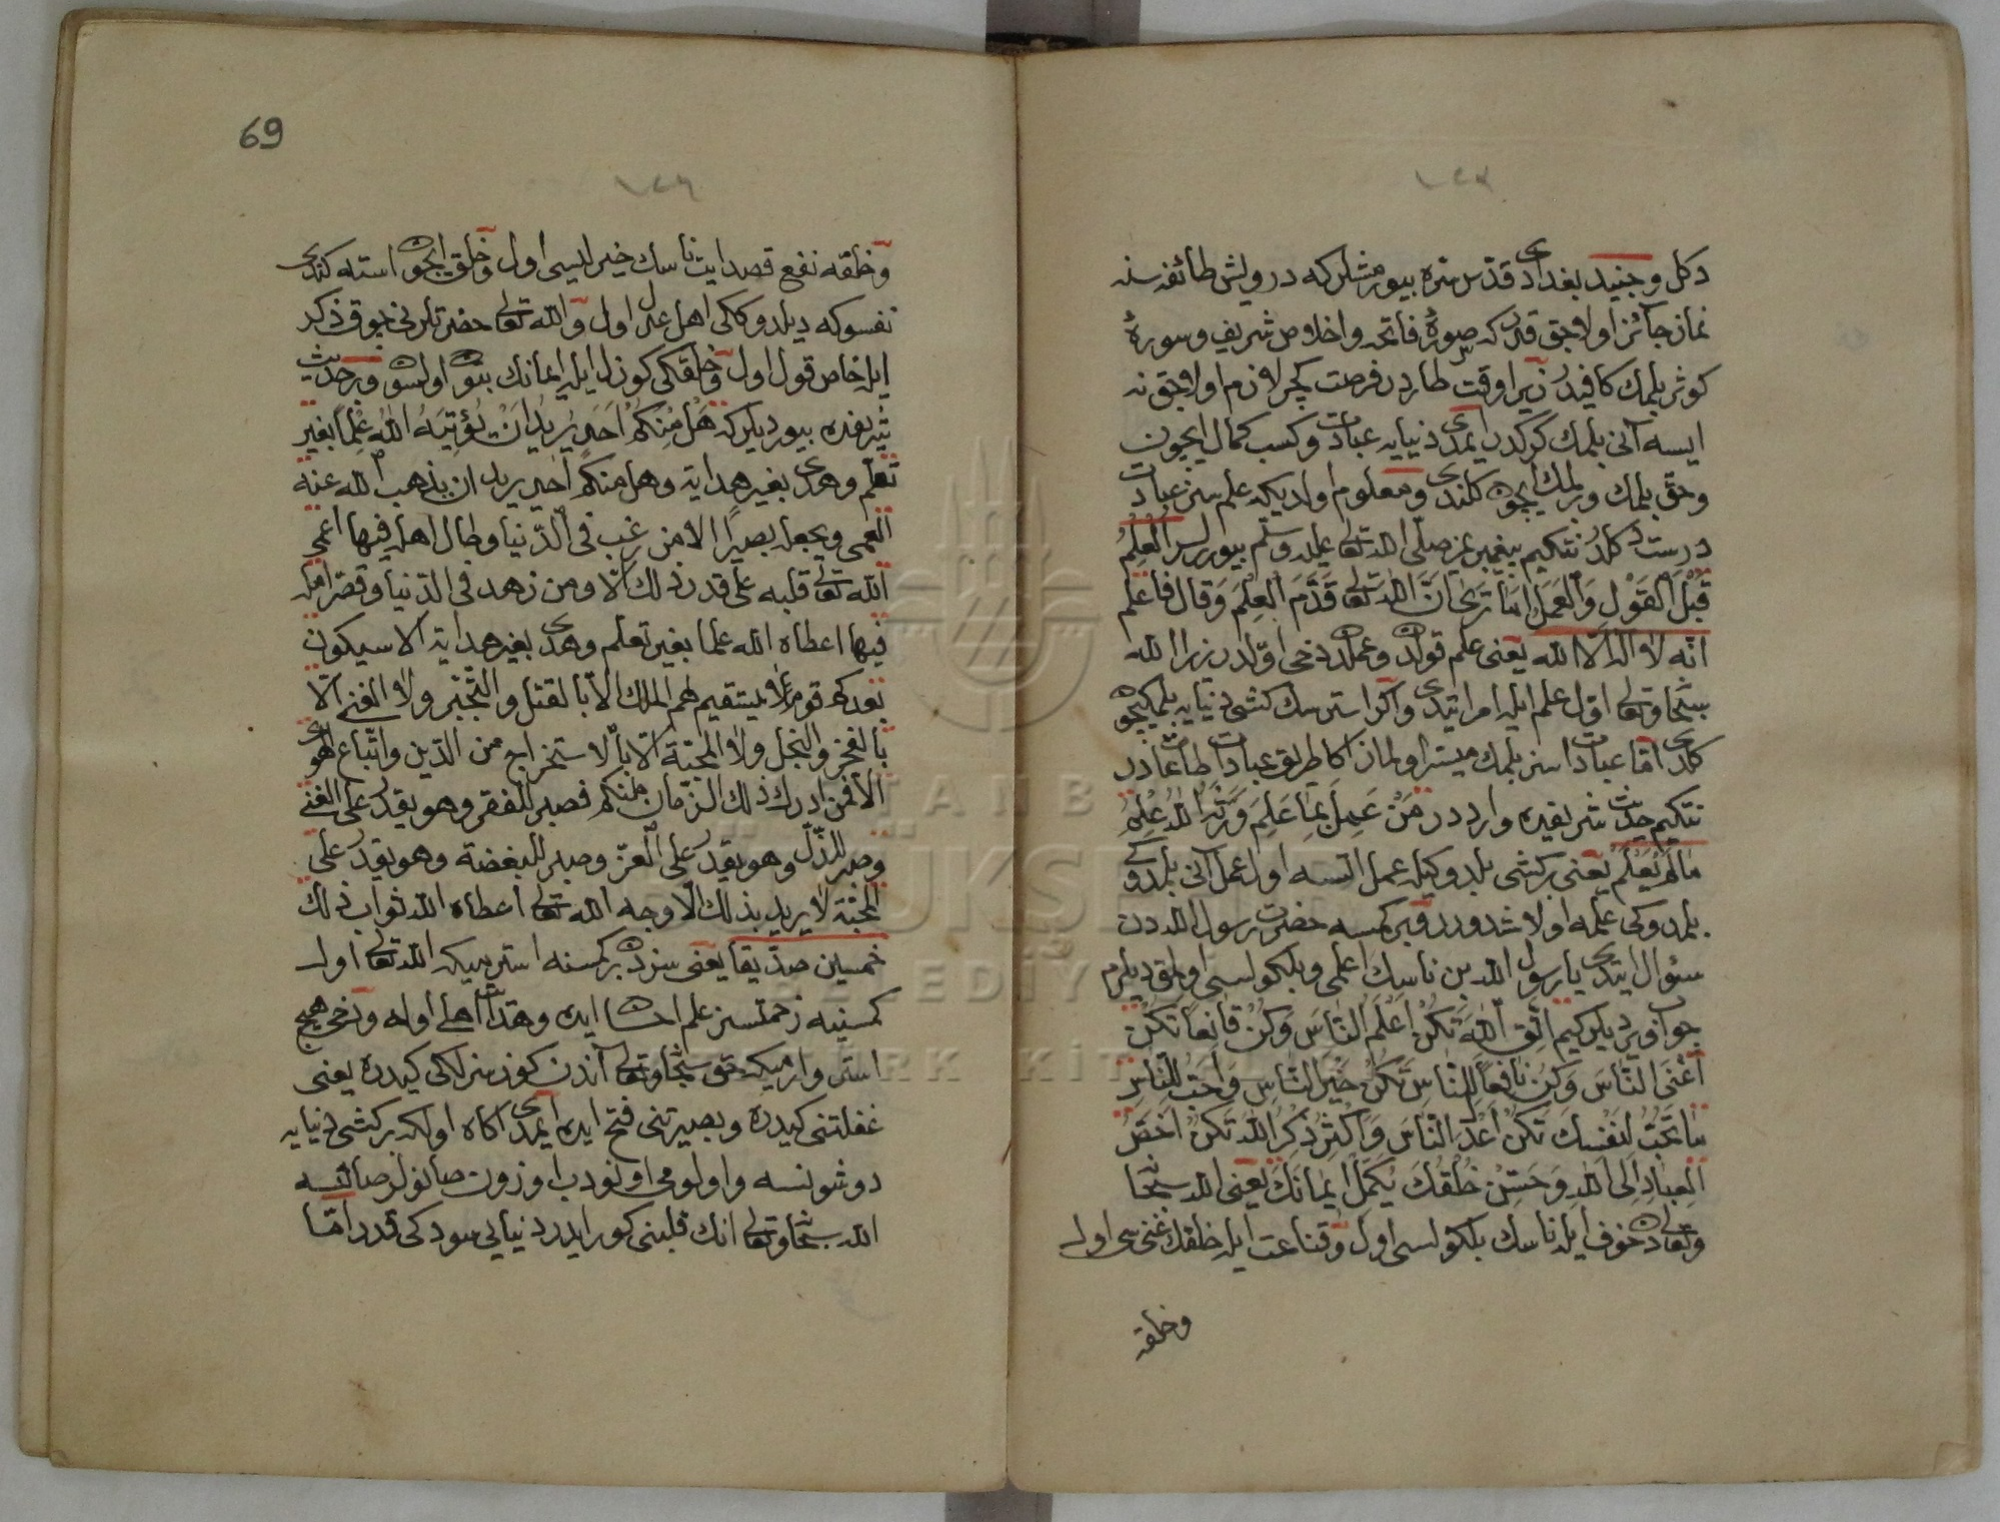 دكل وجنيد بغدادى قدّس سرّه بيورمشلركه درويش طائفه سنه
نماز جائز اولاجق قدر كه صورهٔ فاتحه واخلاص شريف وسورهٔ
كوثر بلمك كافيدر زيرا وقت طاردر فرصت كچر لازم اولاجق نه
ايسه آنى بلمك كركدر ايمدى دنيايه عبادت وكسب كمال ايچون
وحق بلمك وبرلمك ايچون كلندى ومعلوم اولديكه علم سز عبادت
درست دكلدر نتكيم پيغمبرمز صلّى الله تعالى عليه وسلّم بيوررلر العلم
قبل القول والعمل اما ترى انّ الله تعالى قدّم العلم وقال فاعلم
انّه لا اله الّا الله يعنى علم قولدن وعملدن دخى اوّلدر زيرا الله
سبحانه وتعالى اوّل علم ايله امر ايتدى واكر استرسك كشى دنيايه بلمكيچون
كلدى امّا عبادت سز بلمك ميسّر اولماز اكا طريق عبادت طاعاتدر
نتكيم حديث شريفده وارددر مَنْ عَمِلَ بِمَا عَلِمَ وَرَّثَهُ اللهُ عِلْمَ
مَالَمْ يَعْلَمْ يعنى بر كشى بلدوكيله عمل ايتسه اول عمل آنى بلدوكى
بلمدوكى علمه اولاشدورر وبر كمسه حضرت رسول الله دن
سئوال ايتدى يا رسول الله بن ناسك اعلمى وبلكولسى اولمق ديلرم
جواب ويرديلر كيم اتّق الله تكن اعلم الناس وكن قانعاً تكن
اغنى الناس وكن نافعاً للناس تكن خير الناس واحبّ للناس
ما تحبّ لنفسك تكن اعدل الناس واكثر ذكر الله تكن اخصّ
العباد الى الله وحسّن خلقك يكمل ايمانك يعنى الله سبحانه
وتعالىدن خوف ايله ناسك بلكولسى اول وقناعت ايله خلقك غنىسى اول
وخلقه
69
وخلقه نفع قصد ايت ناسك خيرليسى اول وخلق ايچون استه كندى
نفسوكه ديلدوككى اهل عدل اول والله تعالى حضرتلرنى چوق ذكر
ايله خاص قول اول وخلقكى كوزل ايله ايمانك بتون اولسون وبر حديث
شريفده بيورديلر كه هَلْ مِنْكُمْ أَحَدٌ يُرِيدُ اَنْ يُؤْتِيَهُ اللهُ عِلْماً بِغَيْرِ
تعلّم وهدى بغير هداية وهل منكم احد يريد ان يذهب الله عنه
العمى ويجعله بصيراً الا من رغب فى الدّنيا وطال امله فيها اعمى
الله تعالى قلبه على قدر ذلك الا ومن زهد فى الدّنيا وقصّر امله
فيها اعطاه الله علما بغير تعلّم وهدى بغير هداية الا سيكون
بعدكم قوم لا يستقيم لهم الملك الّا بالقتل والتّجبّر ولا الغنى الّا
بالفخر والبخل ولا المحبّة الّا بالاستخراج من الدّين واتّباع الهوى
الا فمن ادرك ذلك الزّمان منكم فصبر للفقر وهو يقدر على الغنى
وصبر للذّلّ وهو يقدر على العزّ وصبر للبغضة وهو يقدر على
المحبّة لا يريد بذلك الّا وجه الله تعالى اعطاه الله ثواب ذلك
خمسين صدّيقا يعنى سزدن بر كمسنه استرميكه الله تعالى اول
كمسنيه زحمتسز علم احسان ايده وهدايت اهلى اوله ودخى هيچ
استر وارميكه حق سبحانه وتعالى آندن كوزسزلكى كيدره يعنى
غفلتنى كيدره وبصيرتنى فتح ايده ايمدى اكاه اولكه بر كشى دنيايه
دوشونسه واولومى اونودب اوزون صانولر صانسه
الله سبحانه وتعالى انك قلبنى كور ايدر دنيايى سودكى قدر امّا